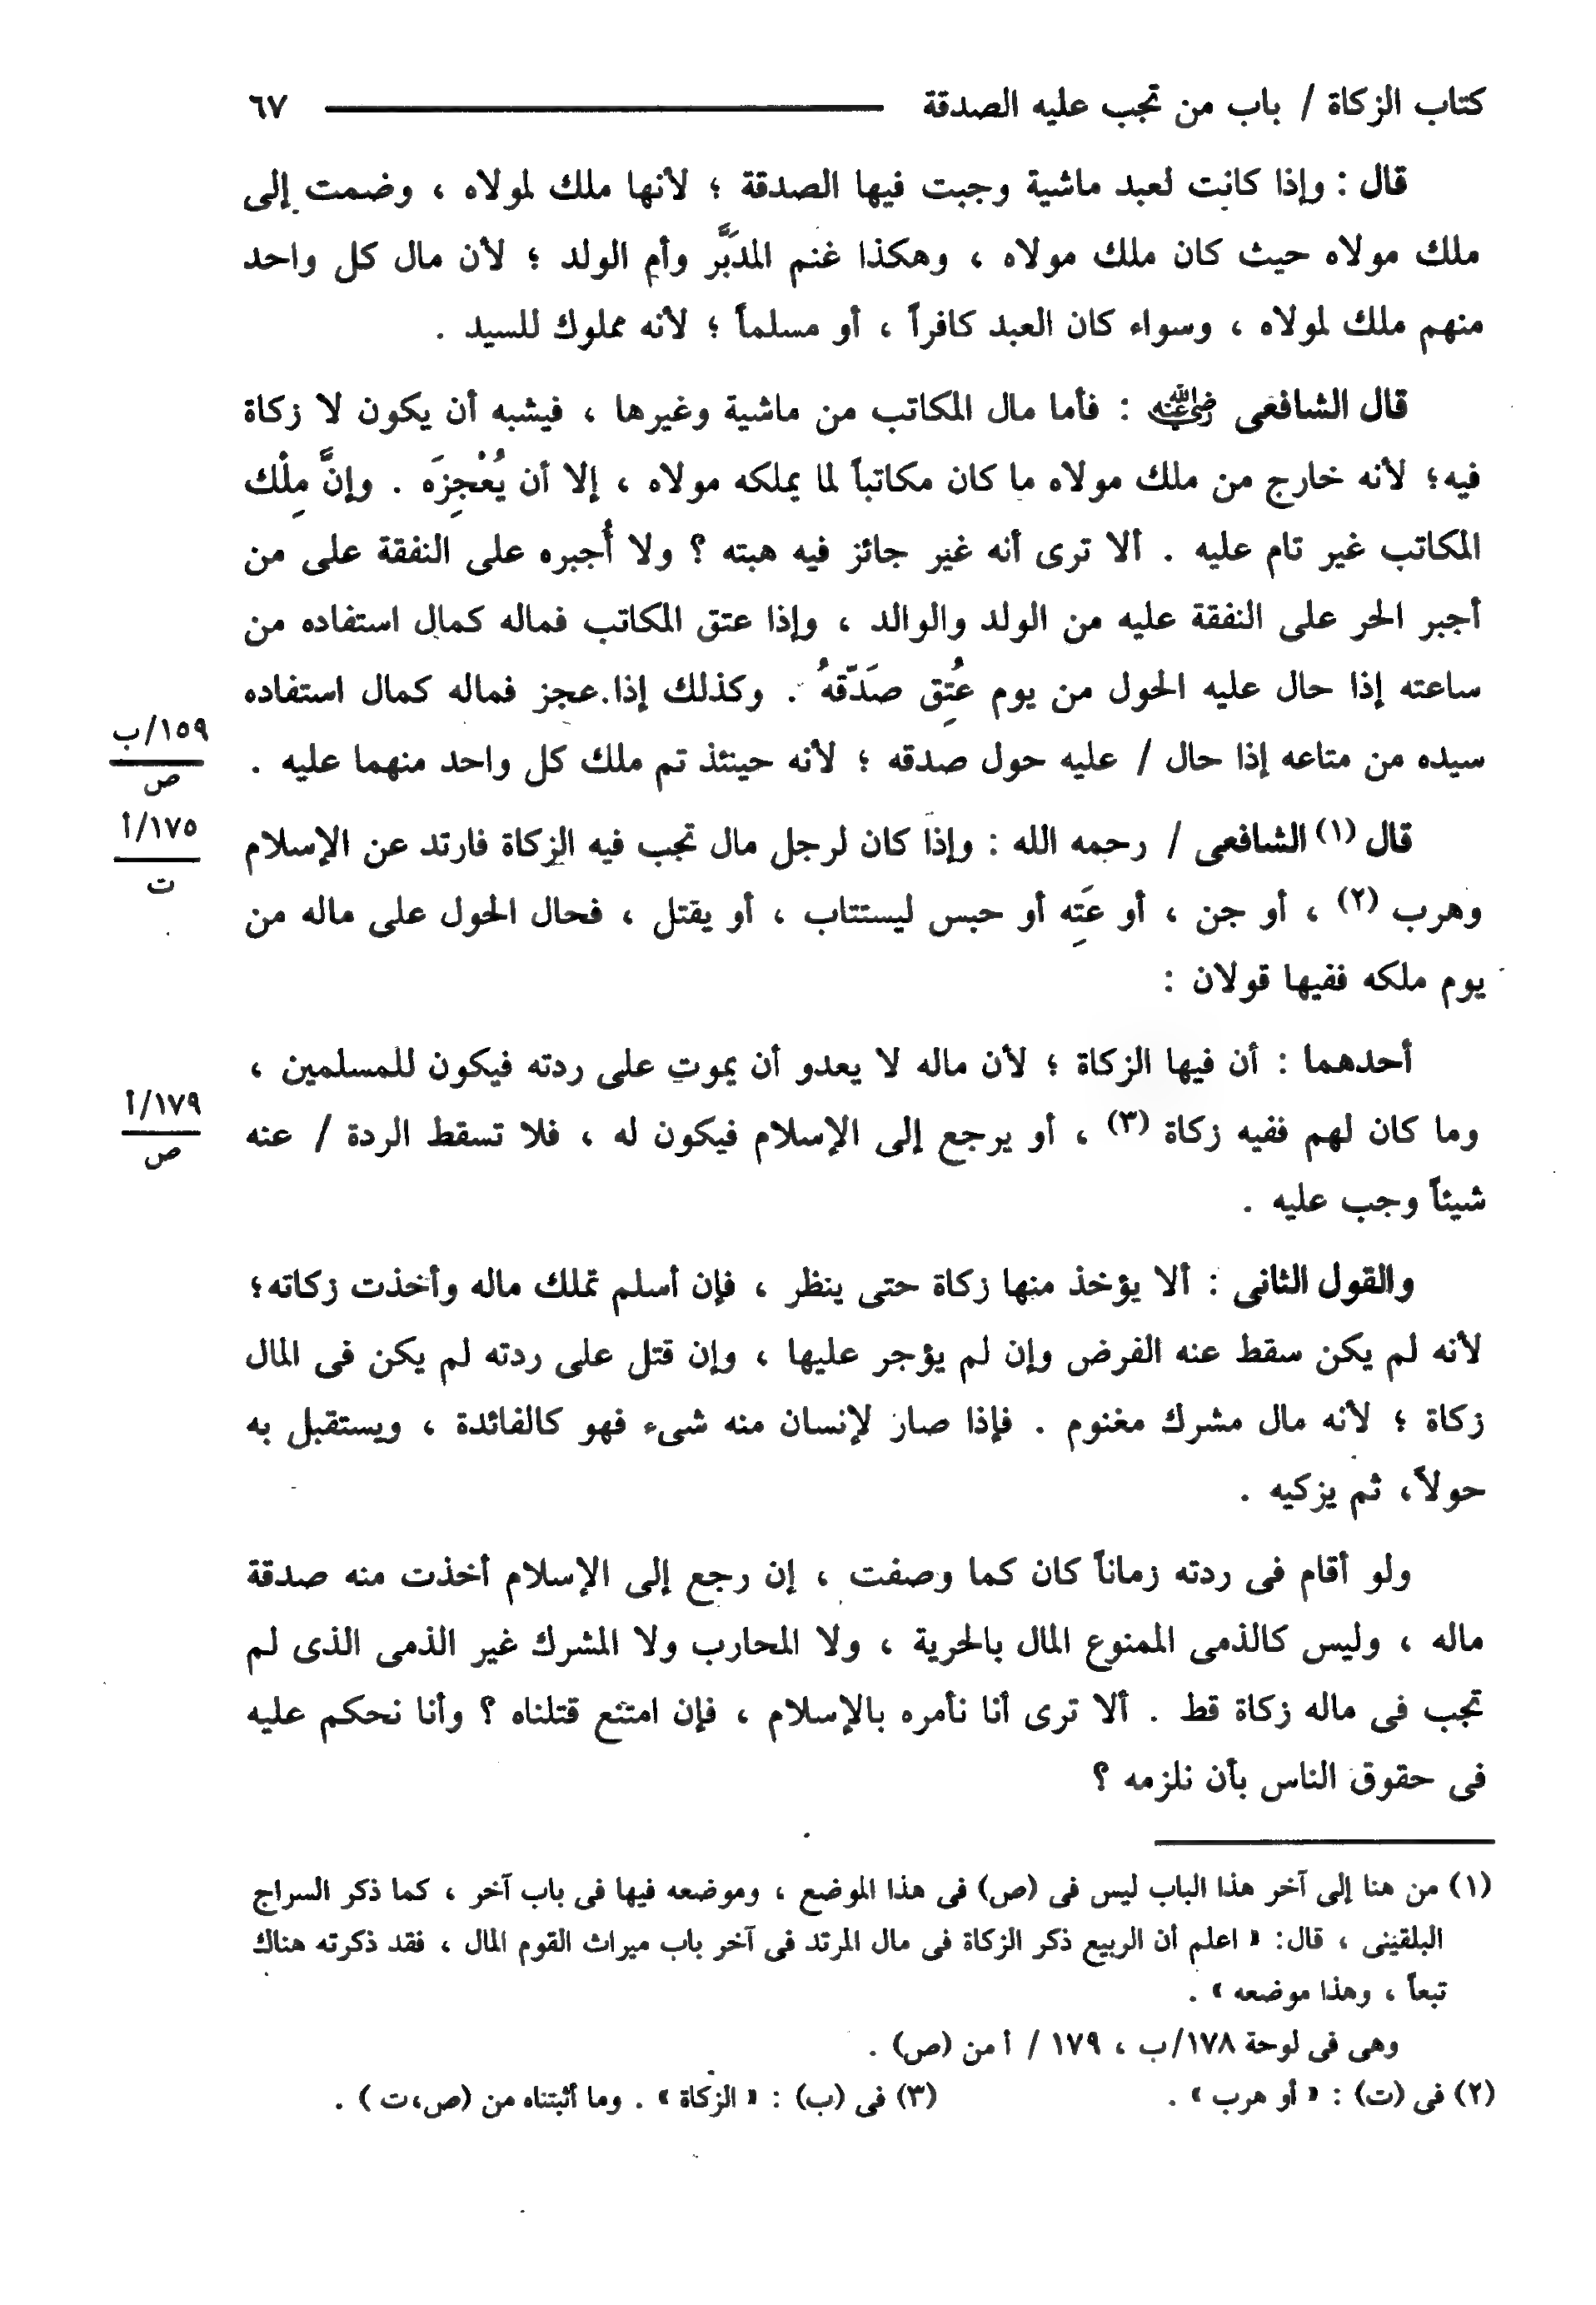 كتاب الزكاة / باب من تجب عليه الصدقة ٦٧
قال : وإذا كانت لعبد ماشية وجبت فيها الصدقة ؛ لأنها ملك لمولاه ، وضمت إلى
ملك مولاه حيث كان ملك مولاه ، وهكذا غنم المدَبَّر وأم الولد ؛ لأن مال كل واحد
منهم ملك لمولاه ، وسواء كان العبد كافراً ، أو مسلماً ؛ لأنه مملوك للسيد .
قال الشافعى رضي الله عنه : فأما مال المكاتب من ماشية وغيرها ، فيشبه أن يكون لا زكاة
فيه؛ لأنه خارج من ملك مولاه ما كان مكاتباً لما يملكه مولاه ، إلا أن يُعْجِزَه . وإنَّ مِلْك
المكاتب غير تام عليه . ألا ترى أنه غير جائز فيه هبته ؟ ولا أُجبره على النفقة على من
أجبر الحر على النفقة عليه من الولد والوالد ، وإذا عتق المكاتب فماله كمال استفاده من
ساعته إذا حال عليه الحول من يوم عُتِق صَدّقهُ . وكذلك إذا عجز فماله كمال استفاده
سيده من متاعه إذا حال / عليه حول صدقه ؛ لأنه حينئذ تم ملك كل واحد منهما عليه .
١٥٩/ب
ص
قال (١) الشافعى / رحمه الله : وإذا كان لرجل مال تجب فيه الزكاة فارتد عن الإسلام
١٧٥/أ
ت
وهرب (٢) ، أو جن ، أو عَتِه أو حبس ليستتاب ، أو يقتل ، فحال الحول على ماله من
يوم ملكه ففيها قولان :
أحدهما : أن فيها الزكاة ؛ لأن ماله لا يعدو أن يموت على ردته فيكون للمسلمين ،
وما كان لهم ففيه زكاة (٣) ، أو يرجع إلى الإسلام فيكون له ، فلا تسقط الردة / عنه
١٧٩/أ
ص
شيئاً وجب عليه .
والقول الثانى : ألا يؤخذ منها زكاة حتى ينظر ، فإن أسلم تملك ماله وأخذت زكاته؛
لأنه لم يكن سقط عنه الفرض وإن لم يؤجر عليها ، وإن قتل على ردته لم يكن فى المال
زكاة ؛ لأنه مال مشرك مغنوم . فإذا صار لإنسان منه شىء فهو كالفائدة ، ويستقبل به
حولاً، ثم يزكيه .
ولو أقام فى ردته زماناً كان كما وصفت ، إن رجع إلى الإسلام أخذت منه صدقة
ماله ، وليس كالذمى الممنوع المال بالحرية ، ولا المحارب ولا المشرك غير الذمى الذى لم
تجب فى ماله زكاة قط . ألا ترى أنا نأمره بالإسلام ، فإن امتنع قتلناه ؟ وأنا نحكم عليه
فى حقوق الناس بأن نلزمه ؟
(١) من هنا إلى آخر هذا الباب ليس فى (ص) فى هذا الموضع ، وموضعه فيها فى باب آخر ، كما ذكر السراج
البلقينى ، قال: « اعلم أن الربيع ذكر الزكاة فى مال المرتد فى آخر باب ميراث القوم المال ، فقد ذكرته هناك
تبعاً ، وهذا موضعه » .
وهى فى لوحة ١٧٨/ب ، ١٧٩ / أ من (ص) .
(٢) فى (ت) : « أو هرب » . (٣) فى (ب) : « الزكاة » . وما أثبتناه من (ص،ت ) .